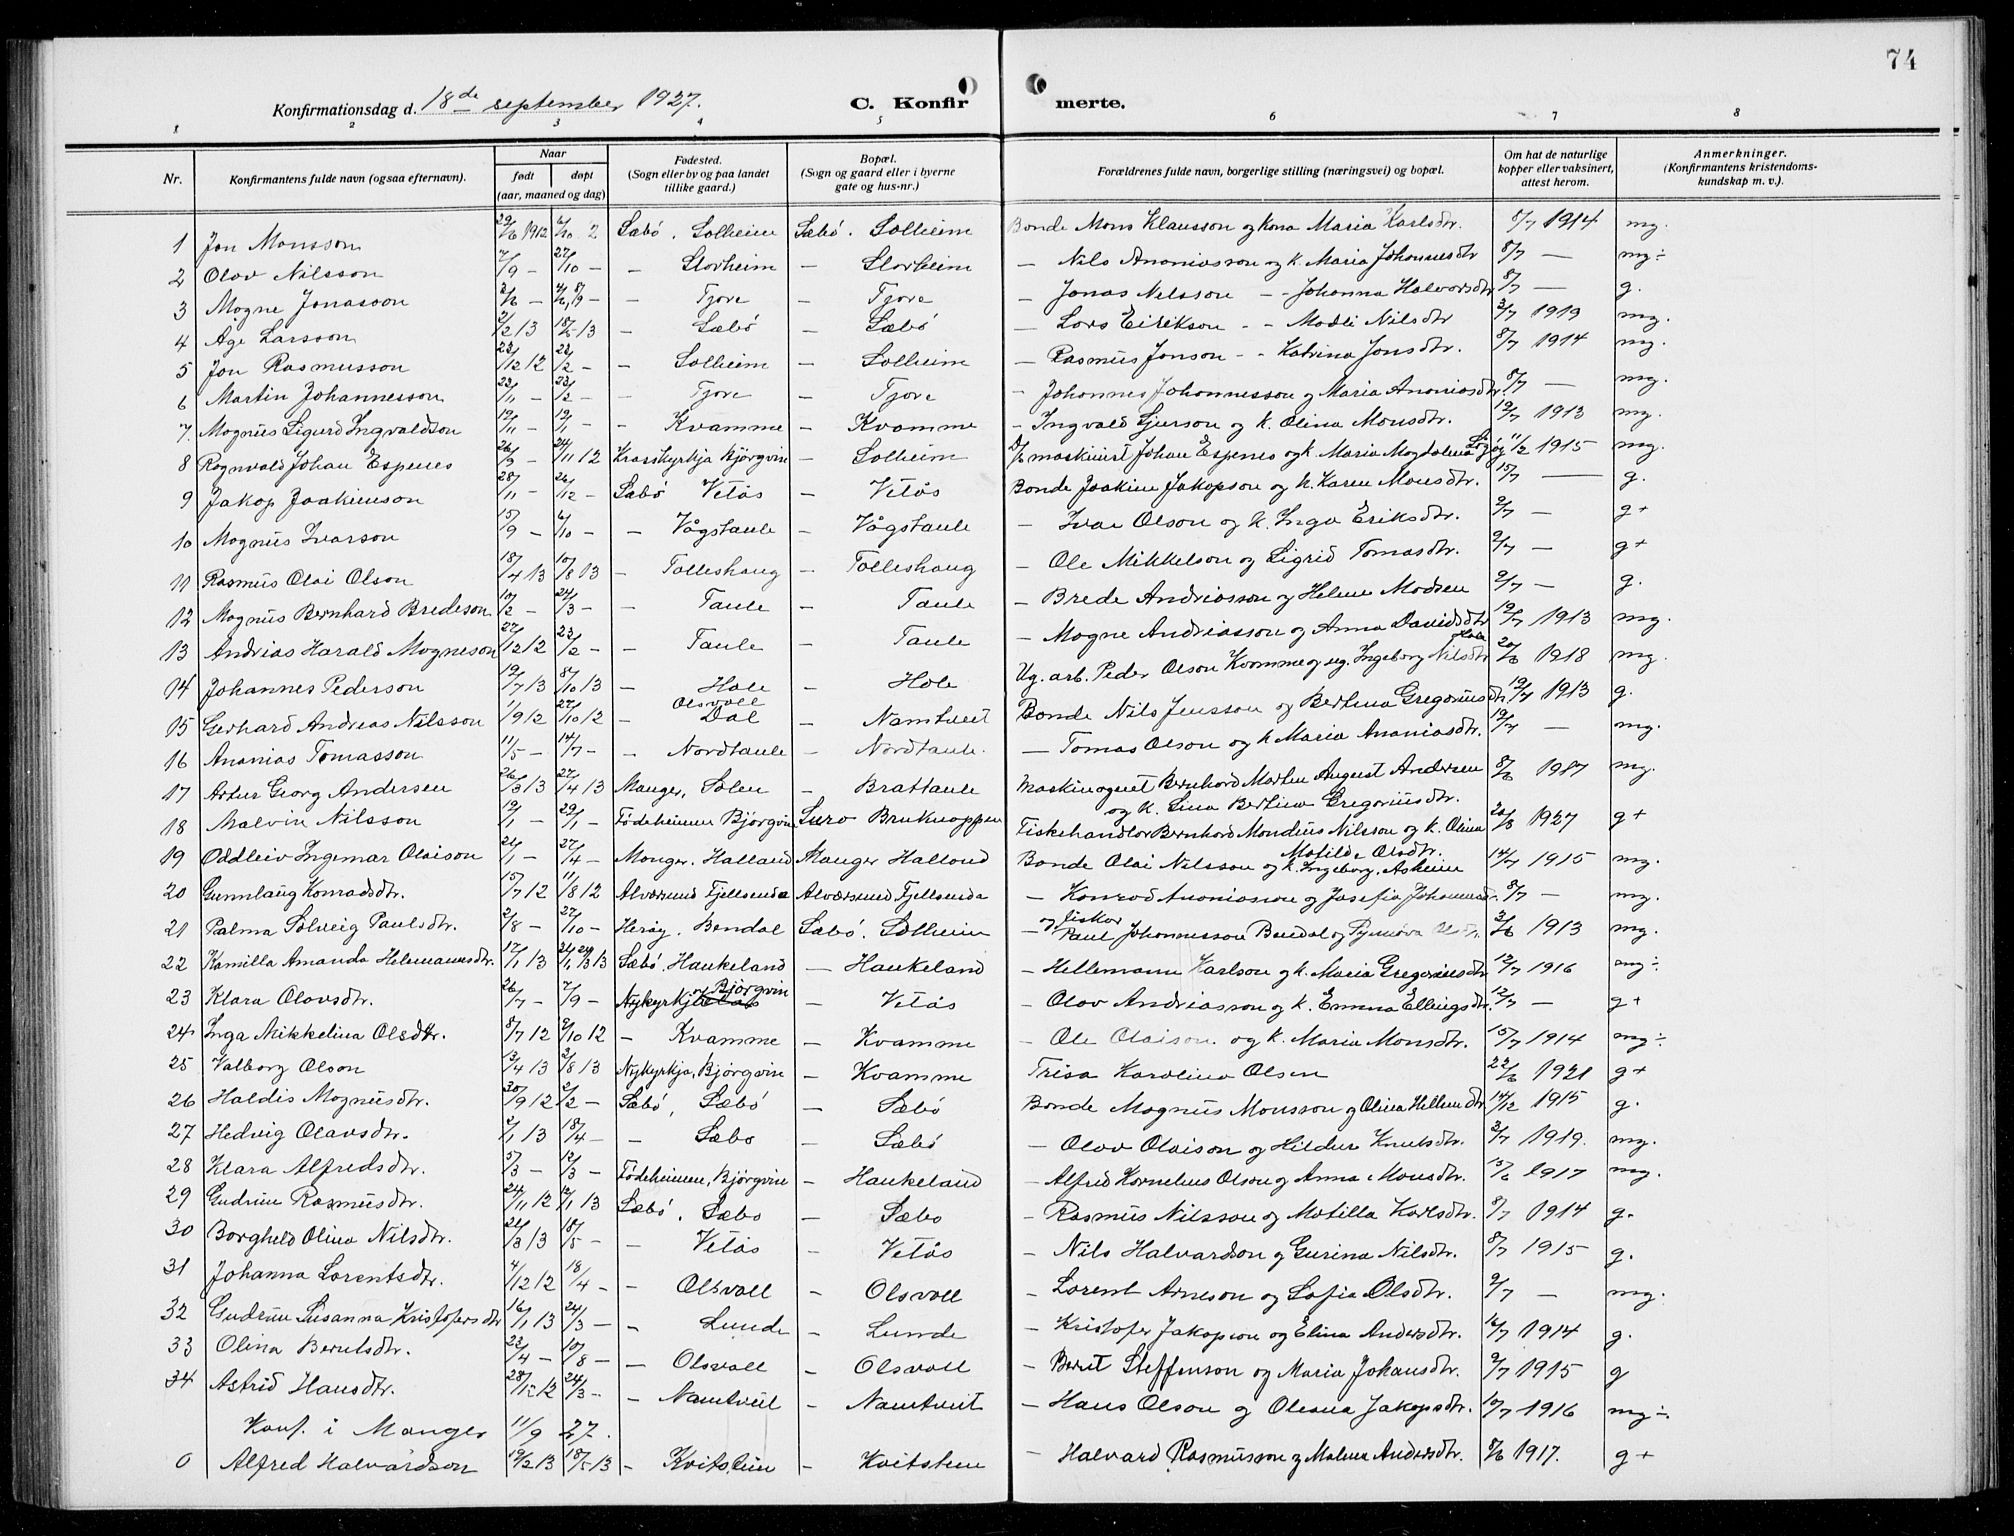 74
Konfirmationsdag d. 18de september 1927. C. Konfirmerte.
1 2 3 4 5 6 7 8
Nr. Konfirmantens fulde navn (ogsaa efternavn). Naar født døpt (aar, maaned og dag) Fødested. (Sogn eller by og paa landet tillike gaard.) Bopæl. (Sogn og gaard eller i byerne gate og hus-nr.) Forældrenes fulde navn, borgerlige stilling (næringsvei) og bopæl. Om hat de naturlige kopper eller vaksinert, attest herom. Anmerkninger. (Konfirmantens kristendomskundskap m. v.).
1 Jon Monsson 29/6 1912 6/10 Sæbö. Solheim Sæbö. Solheim Bonde Mons Klausson og kona Maria Karlsdtr. 8/7 1914 mg.
2 Olav Nilsson 7/9 - 27/10 - - Storheim - Storheim - Nils Ananiasson og k. Maria Johannesdtr 8/7 - mg÷
3 Mogne Jonasson - - Tjore - Tjore - Jonas Nilsson - - Johanna Halvorsdtr 8/7 - g.
4 Åge Larsson 2/2 13 18/5 13 - Sæbö - Sæbö - Lars Eirikson - - Modli Nilsdtr 3/7 1919 mg.
5 Jon Rasmusson 23/12 12 23/2 - - Solheim - Solheim - Rasmus Jonson - - Katrina Jonsdtr. 8/7 1914 mg.
6 Martin Johannesson 22/11 - 23/2 - - Tjore - Tjore - Johannes Johannesson og Maria Ananiasdtr. 8/7 - mg.
7. Magnus Sigurd Ingvaldson 19/11 - 19/1 - - Kvamme - Kvamme - Ingvald Gjerson og k. Olina Monsdtr. 19/7 1913 mg.
8 Ragnvald Johan Espenes 26/9 - 24/11 12 Krosskyrkja Björgvin - Solheim maskinist Johan Espenes og k. Maria Magdalena 11/2 1915 mg.
9 Jakop Joakimson 28/11 - 26/12 - Sæbö Vetås - Vetås Bonde Joakim Jakopson og k. Karen Monsdtr. 15/7 - g.
10 Magnus Ivarson 15/9 - 6/10 - - Vågstaule - Vågstaule - Ivar Olson og k. Inga Eriksdtr. 9/7 - g+
11 Rasmus Olai Olson 18/4 13 10/8 13 - Tolleshaug - Tolleshaug - Ole Mikkelson og Sigrid Tomasdtr. 9/7 - g+
12 Magnus Bernhard Bredeson 10/2 - 24/3 - - Taule - Taule - Brede Andriasson og Helene Madsen 9/7 - g.
13 Andrias Harald Mogneson 27/12 12 23/2 - - Taule - Taule - Mogne Andriasson og Anna Davidsdtr 19/7 1913 mg.
14 Johannes Pederson 19/7 13 8/10 13 - Hole - Hole Ug. arb. Peder Olson Kvamme og ug. Ingeborg Nilsdtr Hole 20/6 1918 mg.
15 Gerhard Andreas Nilsson 1/9 12 27/10 12 - Olsvoll Dal - Namtveit Bonde Nils Jensson og Bertina Gregoriusdtr. 19/7 1913 g.
16 Ananias Tomasson 11/5 - 14/7 - - Nordtaule - Nordtaule. - Tomas Olson og k Maria Ananiasdtr. 19/7 - mg.
17 Artur Georg Andersen 26/3 13 27/4 13 Manger, Solen - Brattaule Maskinagent Bernhard Martin August Andersen og k. Lina Bertine Gregoriusdtr. 8/6 1927 mg.
18 Malvin Nilsson 19/1 - 29/1 - Födeheimen Björgvin Sæbo Bruknappen Fiskehandlar Bernhard Mondius Nilsson og k. Olina Matilde Olsdtr. 20/8 1927 g+
19 Oddleiv Ingemar Olaison 21/1 - 27/4 - Manger. Halland Manger Halland Bonde Olai Nilsson og k. Ingeborg. Askeim 14/7 1915 mg.
20 Gunnlaug Konradsdtr. 15/7 12 11/8 12 Alversund Fjellsenda Alværsund Fjellsenda - Konrad Ananiasson og Josefia Johannesd. 8/7 - mg.
21 Palma Solveig Paulsdtr. 2/8 - 27/10 - Heröy. Bendal Sæbö. Solheim - og fiskar Paul Johannesson Bendal og 3/6 1913 mg.
22 Kamilla Amanda Helemannsdtr. 17/1 13 Sæbö, Haukeland - Haukeland - Hellemann Karlson og k. Maria Gregoriusdtr 12/7 1916 mg÷
23 Klara Olavsdtr. 26/7 - 7/9 - Nykyrkja Björgvin - Vetås - Olav Andriasson og k. Emma Ellingsdtr. 12/7 - g+
24 Inga Mikkelina Olsdtr. 8/7 12 9/10 12 - Kvamme - Kvamme - Ole Olaison. og k. Maria Monsdtr. 15/7 1914 mg÷
25 Valborg Olson 13/4 13 2/8 13 Nykyrkja, Björgvin - Kvamme Trisa Karolina Olsen 22/6 1921 g+
26 Haldis Magnusdtr. 30/9 12 2/2 - Sæbö, Sæbö - Sæbö Bonde Magnus Monsson og Olina Hellemdtr 14/12 1915 g.
27 Hedvig Olavsdtr. 2/1 13 18/4 - - Sæbo - Sæbö - Olav Olaison og Hildur Knutsdtr. 3/7 1919. mg.
28 Klara Alfredsdtr. 5/3 - 12/3 - Födeheimen, Björgvin - Haukeland - Alfred Kornelius Olson og Anna Monsdtr. 13/6 1917 mg.
29 Gudrun Rasmusdtr. 24/11 12 12/1 13 Sæbö. Sæbo - Sæbo - Rasmus Nilsson og Matilla Karlsdtr. 8/7 1914 g.
30 Borghild Olina Nilsdtr. 21/3 13 18/5 - - Vetås - Vetås - Nils Halvardson og Gurina Nilsdtr. 8/7 1915 g.
31 Johanna Lorentsdtr. 4/12 12 18/4 - - Olsvoll - Olsvoll - Lorent Arneson og Sofia Olsdtr. 9/7 - mg.
32 Gudrun Susanna Kristofersdtr 16/1 13 24/3 - - Lunde - Lunde - Kristofer Jakopson og Elina Andersdtr. 16/7 1914 g.
33 Olina Berntsdtr. 23/4 - 10/8 - - Olsvoll - Olsvoll - Bernt Steffenson og Maria Johansdtr. 9/7 1915 g
34 Astrid Hansdtr. 28/12 12 24/3 - - Namtveit - Namtveit - Hans Olson og Oleana Jakopsdtr. 10/7 1916 mg÷.
Konf. i Manger 11/9 27.
0 Alfred Halvardson 19/2 13 18/5 13 - Kvitstein - Kvitstein - Halvard Rasmusson og Malena Andersdtr. 8/6 1917. g+